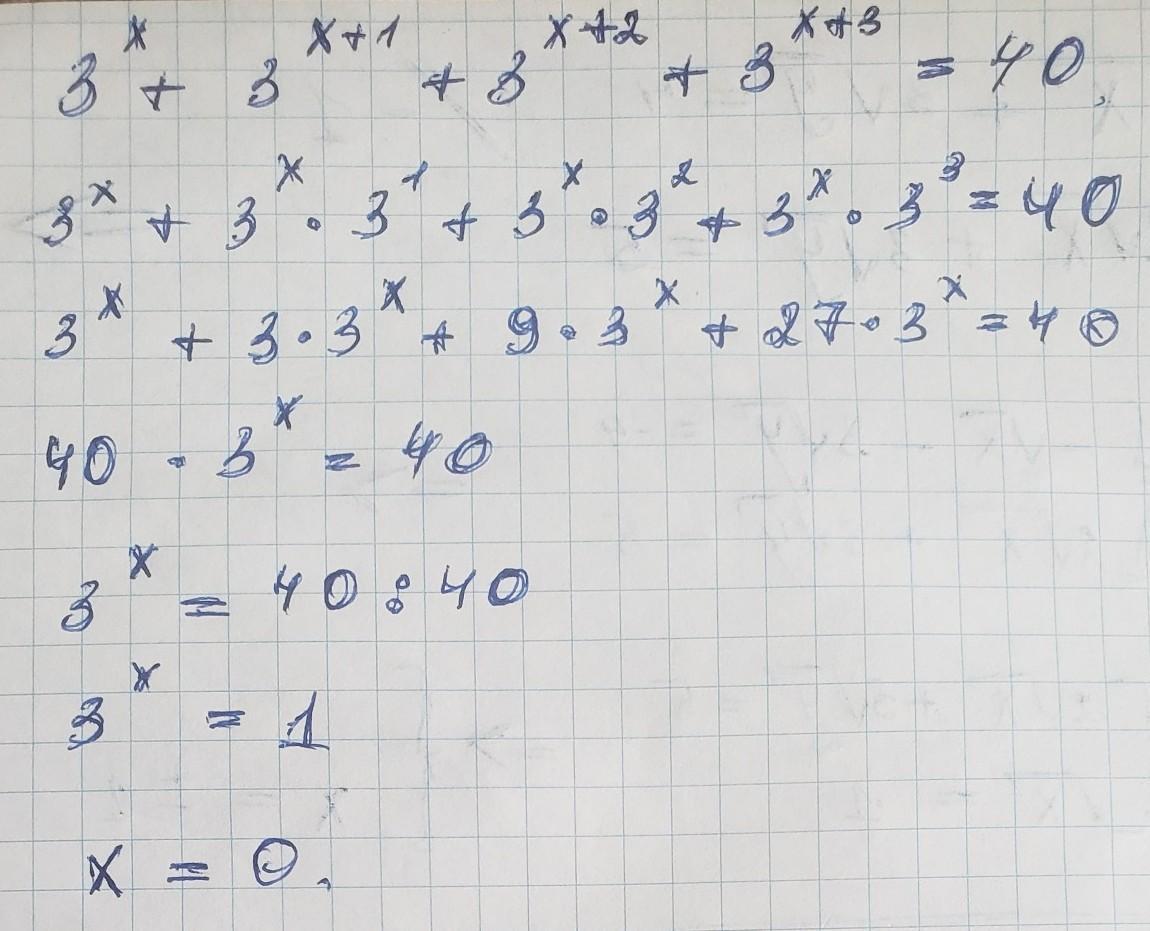 3^x + 3^{x+1} + 3^{x+2} + 3^{x+3} = 40,
3^x + 3^x · 3^1 + 3^x · 3^2 + 3^x · 3^3 = 40
3^x + 3 · 3^x + 9 · 3^x + 27 · 3^x = 40
40 · 3^x = 40
3^x = 40 : 40
3^x = 1
x = 0.